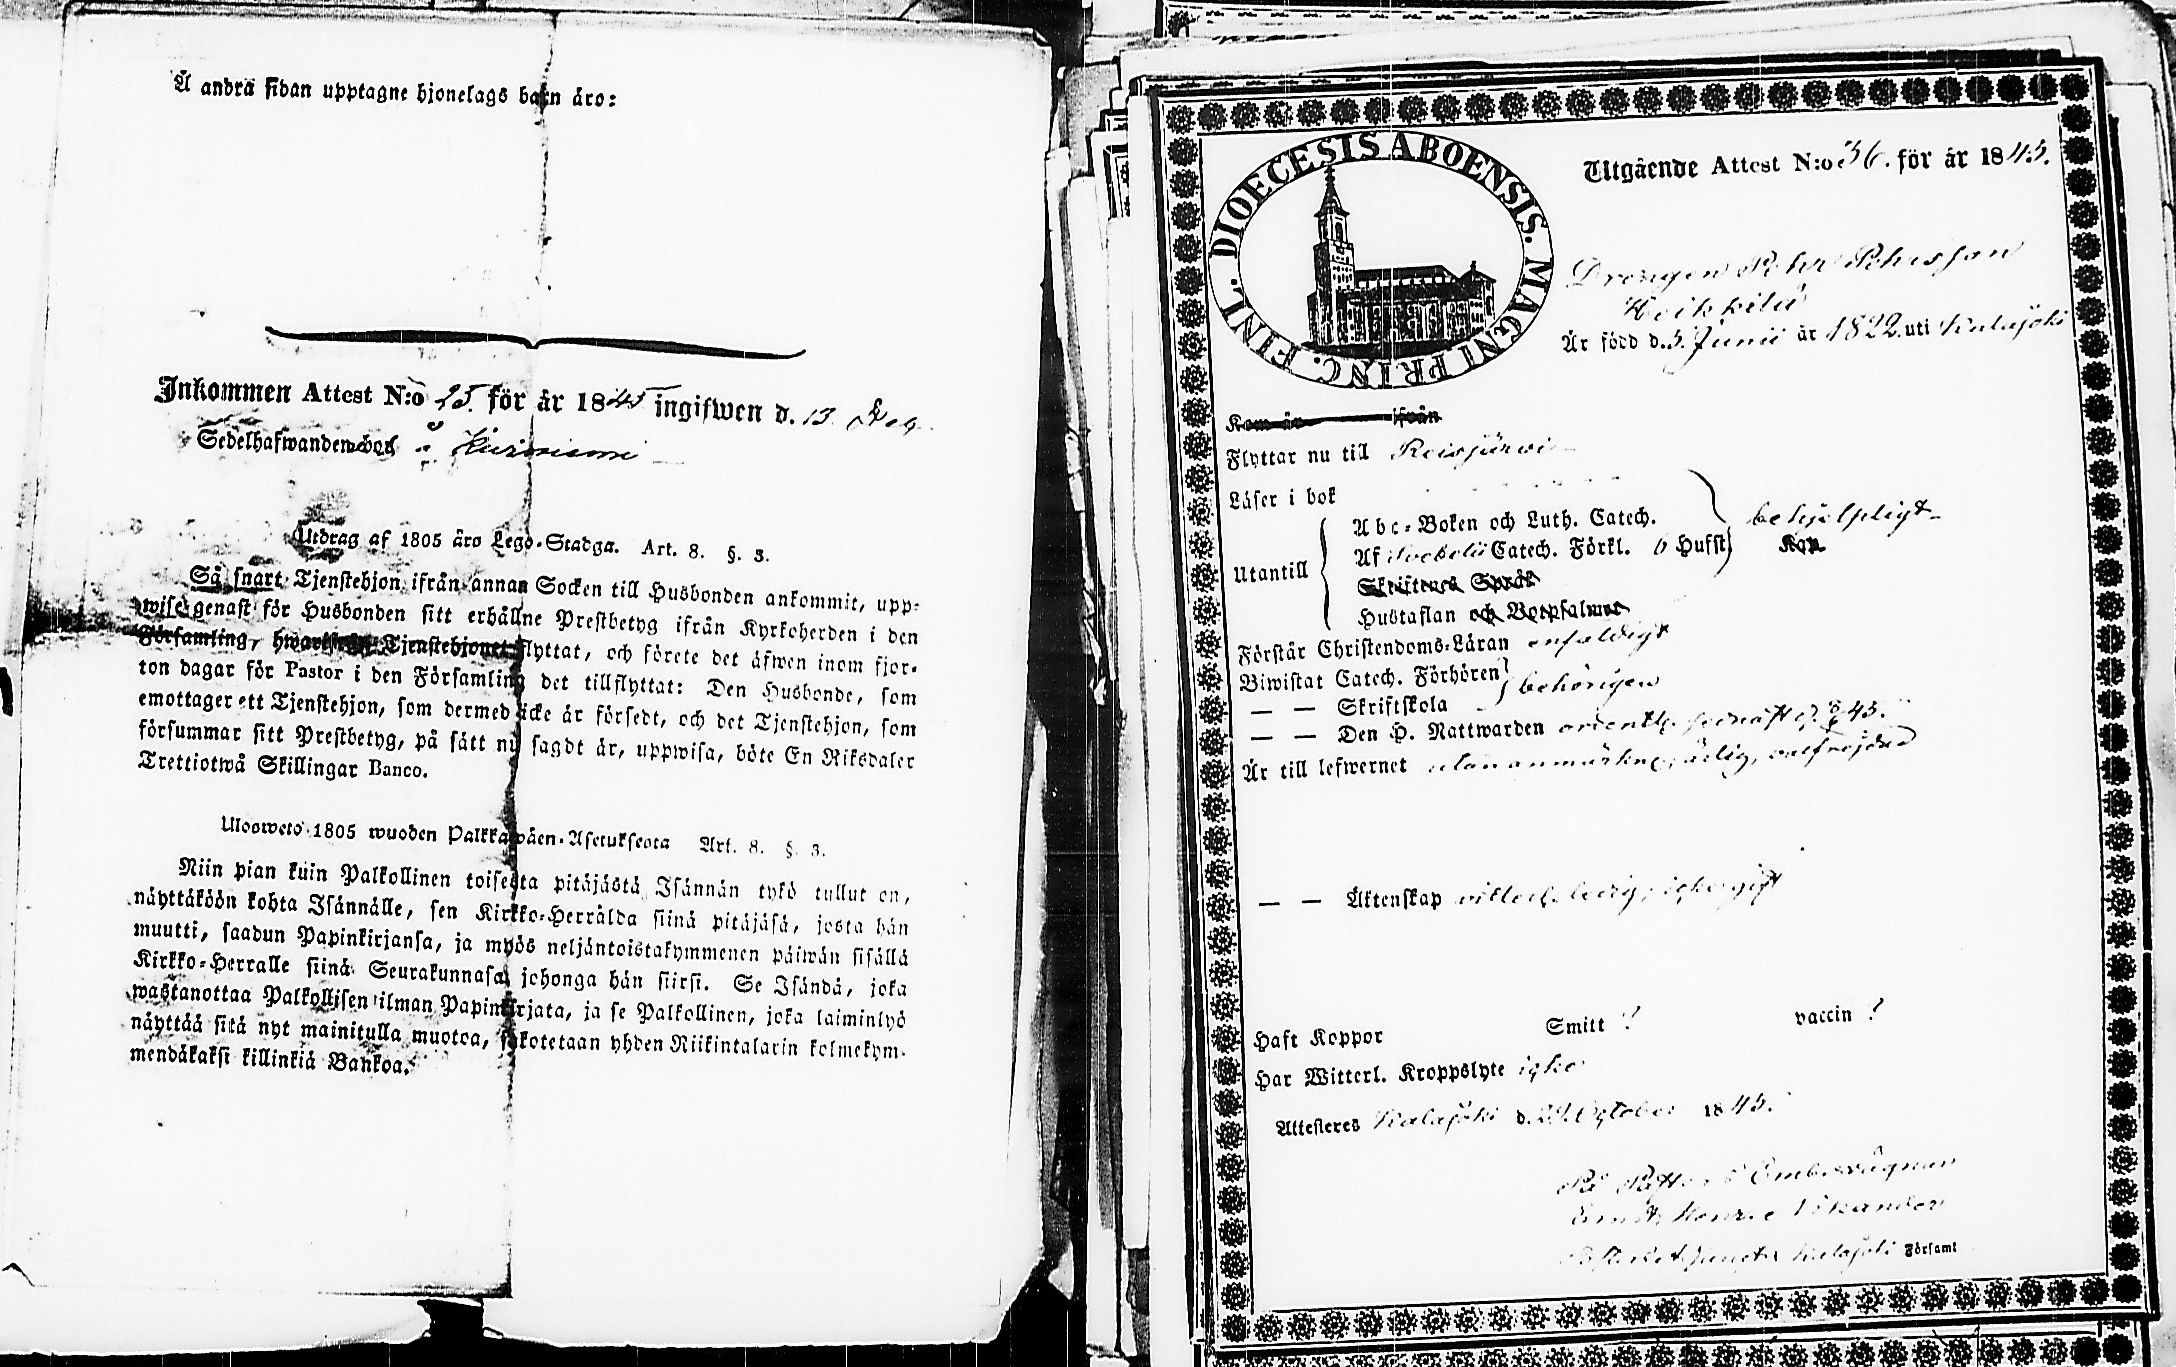 Å andra sidan upptagne hjonelags barn äro:
Inkommen Attest N:o 25. för år 1845 ingifwen d. 13
Sedelhafwanden bor å
Utdrag af 1805 års Lego-Stadga. Art. 8. §. 3.
Så snart Tjenstehjon ifrån annan Socken till Husbonden ankommit, upp-
wise genast för Husbonden sitt erhållne Prestbetyg ifrån Kyrkoherden i den
Församling, Tjenstehjonet flyttat, och förete det äfwen inom fjor-
ton dagar för Pastor i den Församling det tillflyttat: Den Husbonde, som
emottager ett Tjenstehjon, som dermed icke är försedt, och det Tjenstehjon, som
försummar sitt Prestbetyg, på sätt nu sagdt är, uppwisa, böte En Riksdaler
Trettiotwå Skillingar Banco.
Uloswets 1805 wuoden Palkkawäen-Asetuksesta Art. 8. §. 3.
Niin pian kuin Palkollinen toisesta pitäjästä Isännän tykö tullut on,
näyttäköön kohta Isännälle, sen Kirkko-Herralda siinä pitäjäsä, josta hän
muutti, saadun Papinkirjansa, ja myös neljäntoistakymmenen päiwän sisällä
Kirkko-Herralle siinä Seurakunnasa, johonga hän siirsi. Se Isändä, joka
wastanottaa Palkollisen ilman Papinkirjata, ja se Palkollinen, joka laiminlyö
näyttää sitä nyt mainitulla muotoa, sakotetaan yhden Riikintalarin kolmekym-
mendäkaksi killinkiä Bankoa.
DIOECESIS ABOENSIS. MAGNI PRINC. FINL.
Utgående Attest N:o 36. för år 1845.
Drengen Pehr Pehrsson
Heikkilä
Är född d. 5. Junii år 1822. uti Kalajoki
Kom år ifrån
Flyttar nu till Reisjärwi
Läser i bok
Utantill
Abc-Boken och Luth. Catech.
Af Swebelii Catech. Förkl. o Hufst
behjelpligt
Skriftenes Språk
Hustaflan och Botpsalmer
Förstår Christendoms-Läran enfaldigt
Biwistat Catech. Förhören
behörigen
— — Skriftskola
— — Den H. Nattwarden ordentl. sednast
Är till lefwernet utan anmärkn. ärlig, välfrejdad
— — Äktenskap ledig, icke gift
Haft Koppor Smitt ? vaccin ?
Har Witterl. Kroppslyte icke
Attesteres Kalajoki d. 29. October 1845.
På Pastors Embetswägnar
Henric Wikander
Kalajoki Församl